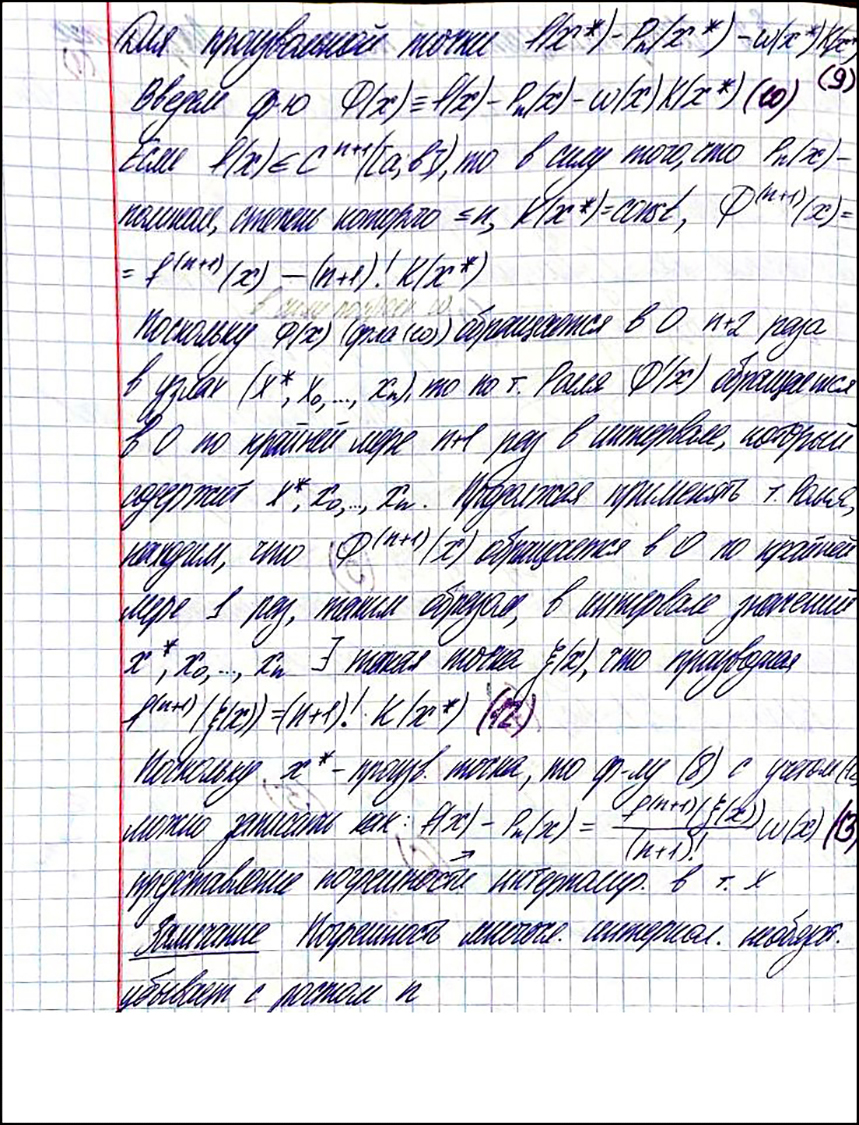 Для произвольной точки f(x*) - Pn(x*) - ω(x*)K(x*
(9)
Введем ф-ю Φ(x) ≡ f(x) - Pn(x) - ω(x)K(x*) (10)
Если f(x) ∈ C^(n+1)([a;b]), то в силу того, что Pn(x) -
полином, степень которого ≤ n, K(x*) = const, Φ^(n+1)(x) =
= f^(n+1)(x) - (n+1)! K(x*)
Поскольку Φ(x) (ф-ла (10)) обращается в 0 n+2 раза
в узлах (x*, x0, ..., xn), то по т. Ролля Φ'(x) обращается
в 0 по крайней мере n+1 раз в интервале, который
содержит x*, x0, ..., xn. Продолжая применять т. Ролля,
находим, что Φ^(n+1)(x) обращается в 0 по крайней
мере 1 раз, таким образом, в интервале значений
x*, x0, ..., xn ∃ такая точка ξ(x), что производная
f^(n+1)(ξ(x)) = (n+1)! K(x*) (12)
Поскольку x* - произв. точка, то ф-лу (8) с учетом (12
можно записать как: f(x) - Pn(x) = f^(n+1)(ξ(x))/(n+1)! ω(x) (13
представление погрешности интерполир. в т. x
Замечание Погрешность многочл. интерпол. необязат.
убывает с ростом n